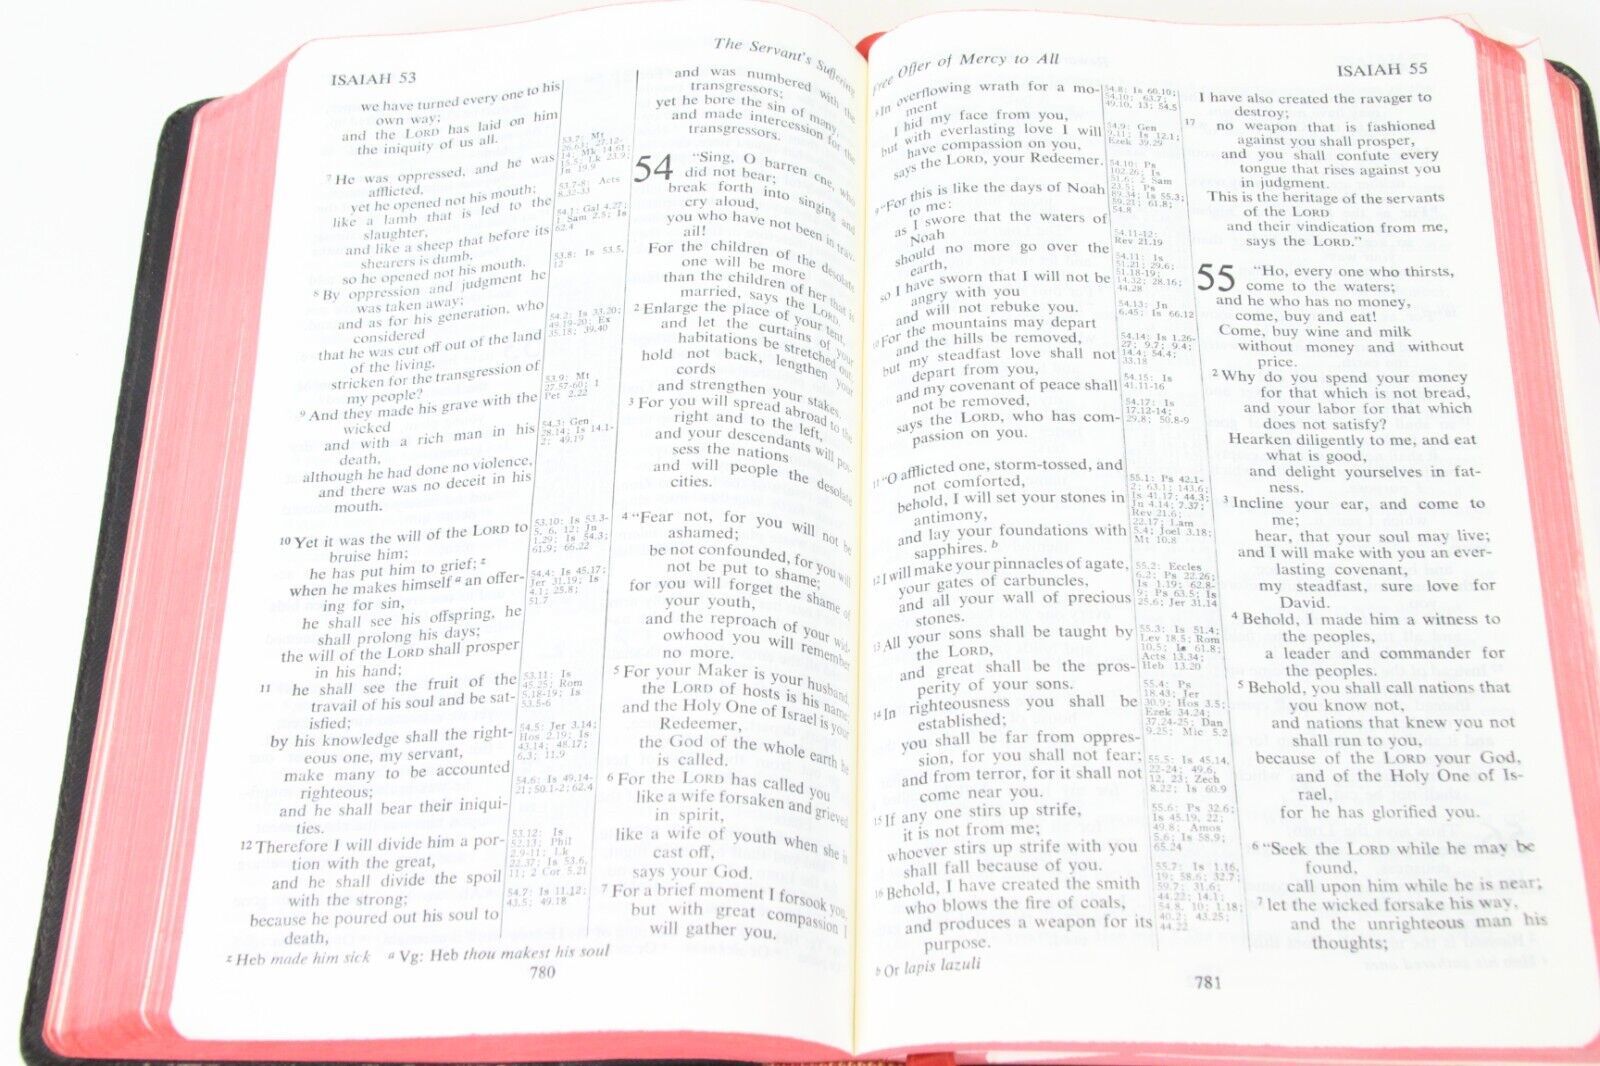 ISAIAH 53
The Servant's Suffering
we have turned every one to his
own way;
and the LORD has laid on him
the iniquity of us all.
7 He was oppressed, and he was
afflicted,
yet he opened not his mouth;
like a lamb that is led to the
slaughter,
and like a sheep that before its
shearers is dumb,
so he opened not his mouth.
8 By oppression and judgment he
was taken away;
and as for his generation, who
considered
that he was cut off out of the land
of the living,
stricken for the transgression of
my people?
9 And they made his grave with the
wicked
and with a rich man in his
death,
although he had done no violence,
and there was no deceit in his
mouth.
10 Yet it was the will of the LORD to
bruise him;
he has put him to grief; z
when he makes himself a an offer-
ing for sin,
he shall see his offspring, he
shall prolong his days;
the will of the LORD shall prosper
in his hand;
11 he shall see the fruit of the
travail of his soul and be sat-
isfied;
by his knowledge shall the right-
eous one, my servant,
make many to be accounted
righteous;
and he shall bear their iniqui-
ties.
12 Therefore I will divide him a por-
tion with the great,
and he shall divide the spoil
with the strong;
because he poured out his soul to
death,
53.7: Mt
26.63; 27.12-
14; Mk 14.61;
15.5; Lk 23.9;
Jn 19.9
53.7-8: Acts
8.32-33
54.1: Gal 4.27;
1 Sam 2.5; Is
62.4
53.8: Is 53.5,
12
54.2: Is 33.20;
49.19-20; Ex
35.18; 39.40
53.9: Mt
27.57-60; 1
Pet 2.22
54.3: Gen
28.14; Is 14.1-
2; 49.19
53.10: Is 53.3-
5, 6, 12; Jn
1.29; Is 54.3;
61.9; 66.22
54.4: Is 45.17;
Jer 31.19; Is
4.1; 25.8;
51.7
53.11: Is
45.25; Rom
5.18-19; Is
53.5-6
54.5: Jer 3.14;
Hos 2.19; Is
43.14; 48.17;
6.3; 11.9
54.6: Is 49.14-
21; 50.1-2; 62.4
53.12: Is
52.13; Phil
2.9-11; Lk
22.37; Is 53.6,
11; 2 Cor 5.21
54.7: Is 11.12;
43.5; 49.18
and was numbered with the
transgressors;
yet he bore the sin of many,
and made intercession for the
transgressors.
54 "Sing, O barren one, who
did not bear;
break forth into singing and
cry aloud,
you who have not been in trav-
ail!
For the children of the desolate
one will be more
than the children of her that is
married, says the LORD.
2 Enlarge the place of your tent,
and let the curtains of your
habitations be stretched out;
hold not back, lengthen your
cords
and strengthen your stakes.
3 For you will spread abroad to the
right and to the left,
and your descendants will pos-
sess the nations
and will people the desolate
cities.
4 "Fear not, for you will not be
ashamed;
be not confounded, for you will
not be put to shame;
for you will forget the shame of
your youth,
and the reproach of your wid-
owhood you will remember
no more.
5 For your Maker is your husband,
the LORD of hosts is his name;
and the Holy One of Israel is your
Redeemer,
the God of the whole earth he
is called.
6 For the LORD has called you
like a wife forsaken and grieved
in spirit,
like a wife of youth when she is
cast off,
says your God.
7 For a brief moment I forsook you,
but with great compassion I
will gather you.
z Heb made him sick a Vg: Heb thou makest his soul
780
Free Offer of Mercy to All
ISAIAH 55
8 In overflowing wrath for a mo-
ment
I hid my face from you,
but with everlasting love I will
have compassion on you,
says the LORD, your Redeemer.
9 "For this is like the days of Noah
to me:
as I swore that the waters of
Noah
should no more go over the
earth,
so I have sworn that I will not be
angry with you
and will not rebuke you.
10 For the mountains may depart
and the hills be removed,
but my steadfast love shall not
depart from you,
and my covenant of peace shall
not be removed,
says the LORD, who has com-
passion on you.
11 "O afflicted one, storm-tossed, and
not comforted,
behold, I will set your stones in
antimony,
and lay your foundations with
sapphires. b
12 I will make your pinnacles of agate,
your gates of carbuncles,
and all your wall of precious
stones.
13 All your sons shall be taught by
the LORD,
and great shall be the pros-
perity of your sons.
14 In righteousness you shall be
established;
you shall be far from oppres-
sion, for you shall not fear;
and from terror, for it shall not
come near you.
15 If any one stirs up strife,
it is not from me;
whoever stirs up strife with you
shall fall because of you.
16 Behold, I have created the smith
who blows the fire of coals,
and produces a weapon for its
purpose.
54.8: Is 60.10;
54.10; 63.7;
49.10, 13; 54.5
54.9: Gen
9.11; Is 12.1;
Ezek 39.29
54.10: Ps
102.26; Is
51.6; 2 Sam
23.5; Ps
89.34; Is 55.3;
59.21; 61.8;
54.8
54.11-12:
Rev 21.19
54.11: Is
51.21; 29.6;
51.18-19;
14.32; 28.16;
44.28
54.13: Jn
6.45; Is 66.12
54.14: Is 1.26-
27; 9.7; 9.4;
14.4; 54.4;
33.18
54.15: Is
41.11-16
54.17: Is
17.12-14;
29.8; 50.8-9
55.1: Ps 42.1-
2; 63.1; 143.6;
Is 41.17; 44.3;
Jn 4.14; 7.37;
Rev 21.6;
22.17; Lam
5.4; Joel 3.18;
Mt 10.8
55.2: Eccles
6.2; Ps 22.26;
Is 1.19; 62.8-
9; Ps 63.5; Is
25.6; Jer 31.14
55.3: Is 51.4;
Lev 18.5; Rom
10.5; Is 61.8;
Acts 13.34;
Heb 13.20
55.4: Ps
18.43; Jer
30.9; Hos 3.5;
Ezek 34.24;
37.24-25; Dan
9.25; Mic 5.2
55.5: Is 45.14,
22-24; 49.6,
12, 23; Zech
8.22; Is 60.9
55.6: Ps 32.6;
Is 45.19, 22;
49.8; Amos
5.6; Is 58.9;
65.24
55.7: Is 1.16,
19; 58.6; 32.7;
59.7; 31.6;
44.22; 14.1;
54.8, 10; 1.18;
40.2; 43.25;
44.22
I have also created the ravager to
destroy;
17 no weapon that is fashioned
against you shall prosper,
and you shall confute every
tongue that rises against you
in judgment.
This is the heritage of the servants
of the LORD
and their vindication from me,
says the LORD."
55 "Ho, every one who thirsts,
come to the waters;
and he who has no money,
come, buy and eat!
Come, buy wine and milk
without money and without
price.
2 Why do you spend your money
for that which is not bread,
and your labor for that which
does not satisfy?
Hearken diligently to me, and eat
what is good,
and delight yourselves in fat-
ness.
3 Incline your ear, and come to
me;
hear, that your soul may live;
and I will make with you an ever-
lasting covenant,
my steadfast, sure love for
David.
4 Behold, I made him a witness to
the peoples,
a leader and commander for
the peoples.
5 Behold, you shall call nations that
you know not,
and nations that knew you not
shall run to you,
because of the LORD your God,
and of the Holy One of Is-
rael,
for he has glorified you.
6 "Seek the LORD while he may be
found,
call upon him while he is near;
7 let the wicked forsake his way,
and the unrighteous man his
thoughts;
b Or lapis lazuli
781